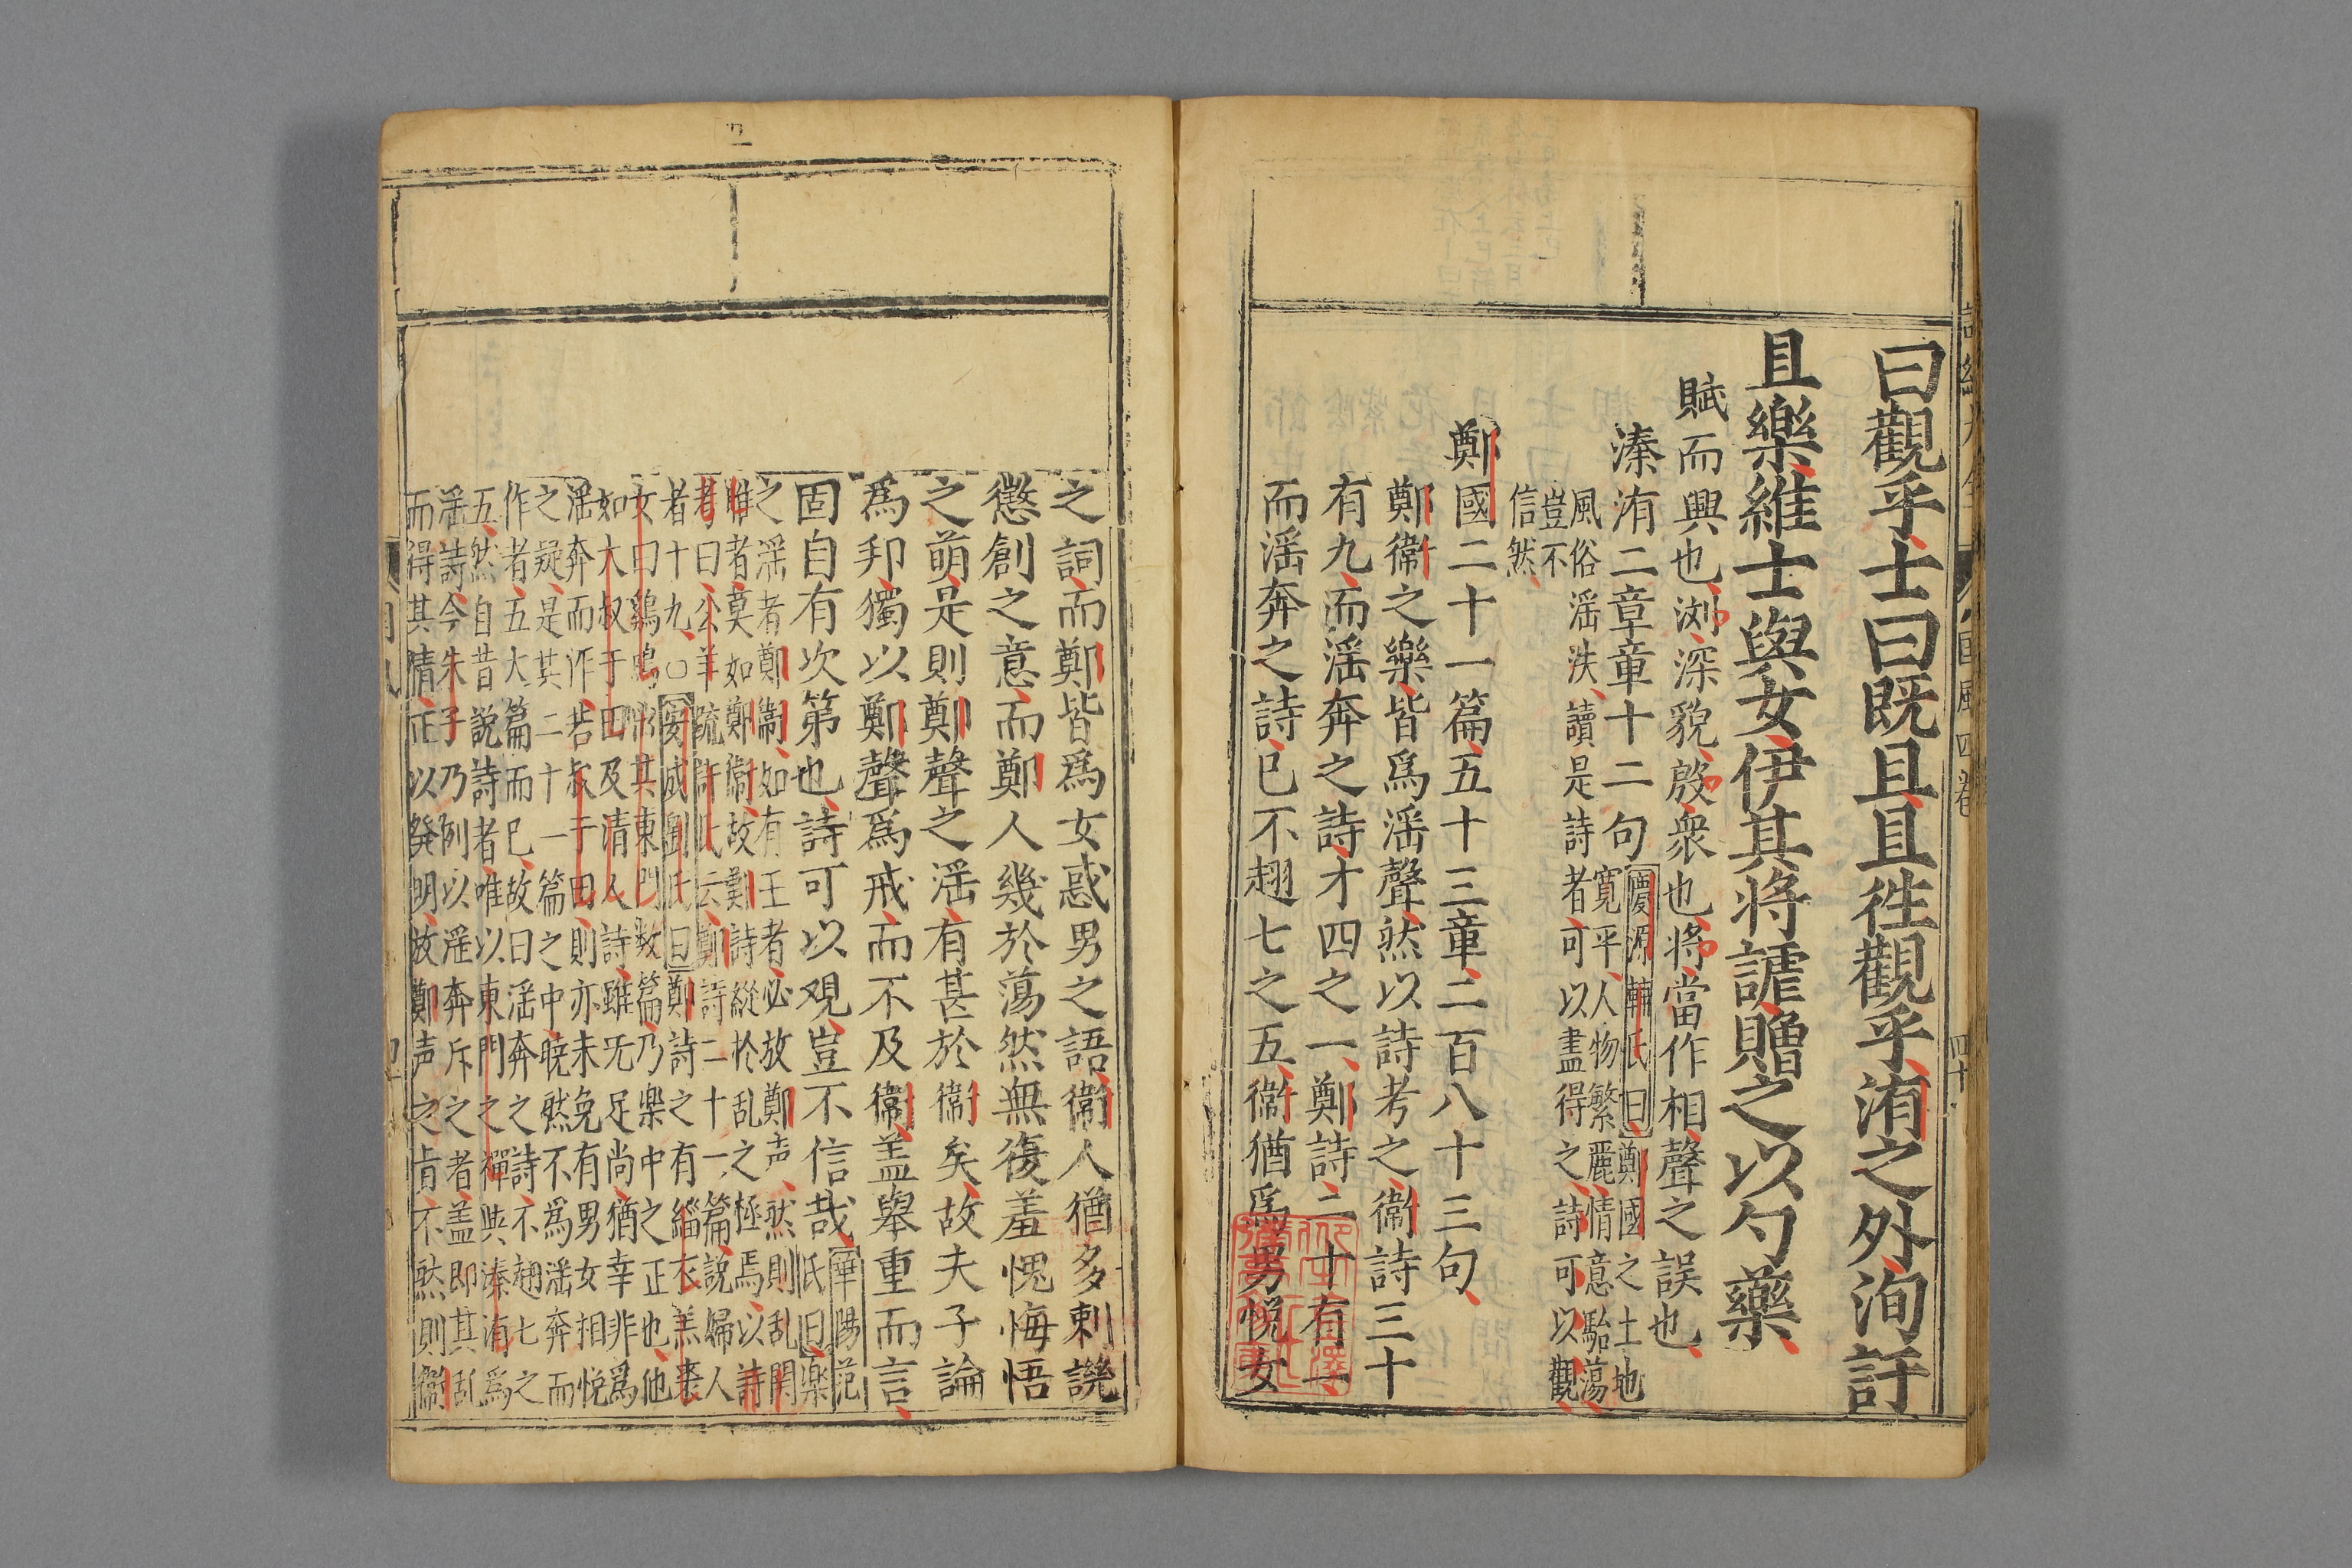 曰觀乎士曰既且且徃觀乎洧之外洵訏
且樂維士與女伊其將謔贈之以勺藥
賦而興也瀏深貌殷衆也將當作相聲之誤也
溱洧二章章十二句
慶源輔氏曰鄭國之土地
寬平人物繁麗情意駘蕩
風俗滛泆讀是詩者可以盡得之詩可以觀
豈不
信然
鄭國二十一篇五十三章二百八十三句
鄭衞之樂皆爲滛聲然以詩考之衞詩三十
有九而滛奔之詩才四之一鄭詩二十有一
而滛奔之詩已不翅七之五衞猶爲男悅女
之詞而鄭皆爲女惑男之語衞人猶多刺譏
懲創之意而鄭人幾於蕩然無復羞愧悔悟
之萌是則鄭聲之滛有甚於衞矣故夫子論
爲邦獨以鄭聲爲戒而不及衞盖舉重而言
固自有次第也詩可以观豈不信哉
華陽范
氏曰楽
之滛者鄭衞如有王者必放鄭声然則乱関
雎者莫如鄭衞故鄭詩縱於乱之極焉以詩
考曰公羊疏許氏云鄭詩二十一篇說婦人
者十九○安成劉氏曰鄭詩之有緇衣羔裘
女曰鷄鳴出其東門数篇乃楽中之正也他
如大叔于田及清人詩雖无足尚猶幸非爲
滛奔而作若叔于田則亦未免有男女相悅
之疑是其二十一篇之中暁然不爲滛奔而
作者五大篇而已故曰滛奔之詩不翅七之
五然自昔說詩者唯以東門之墠與溱洧爲
滛詩今朱子乃例以滛奔斥之者盖即其乱
而得其情正以發明放鄭声之旨不然則衞
國風四卷
四十